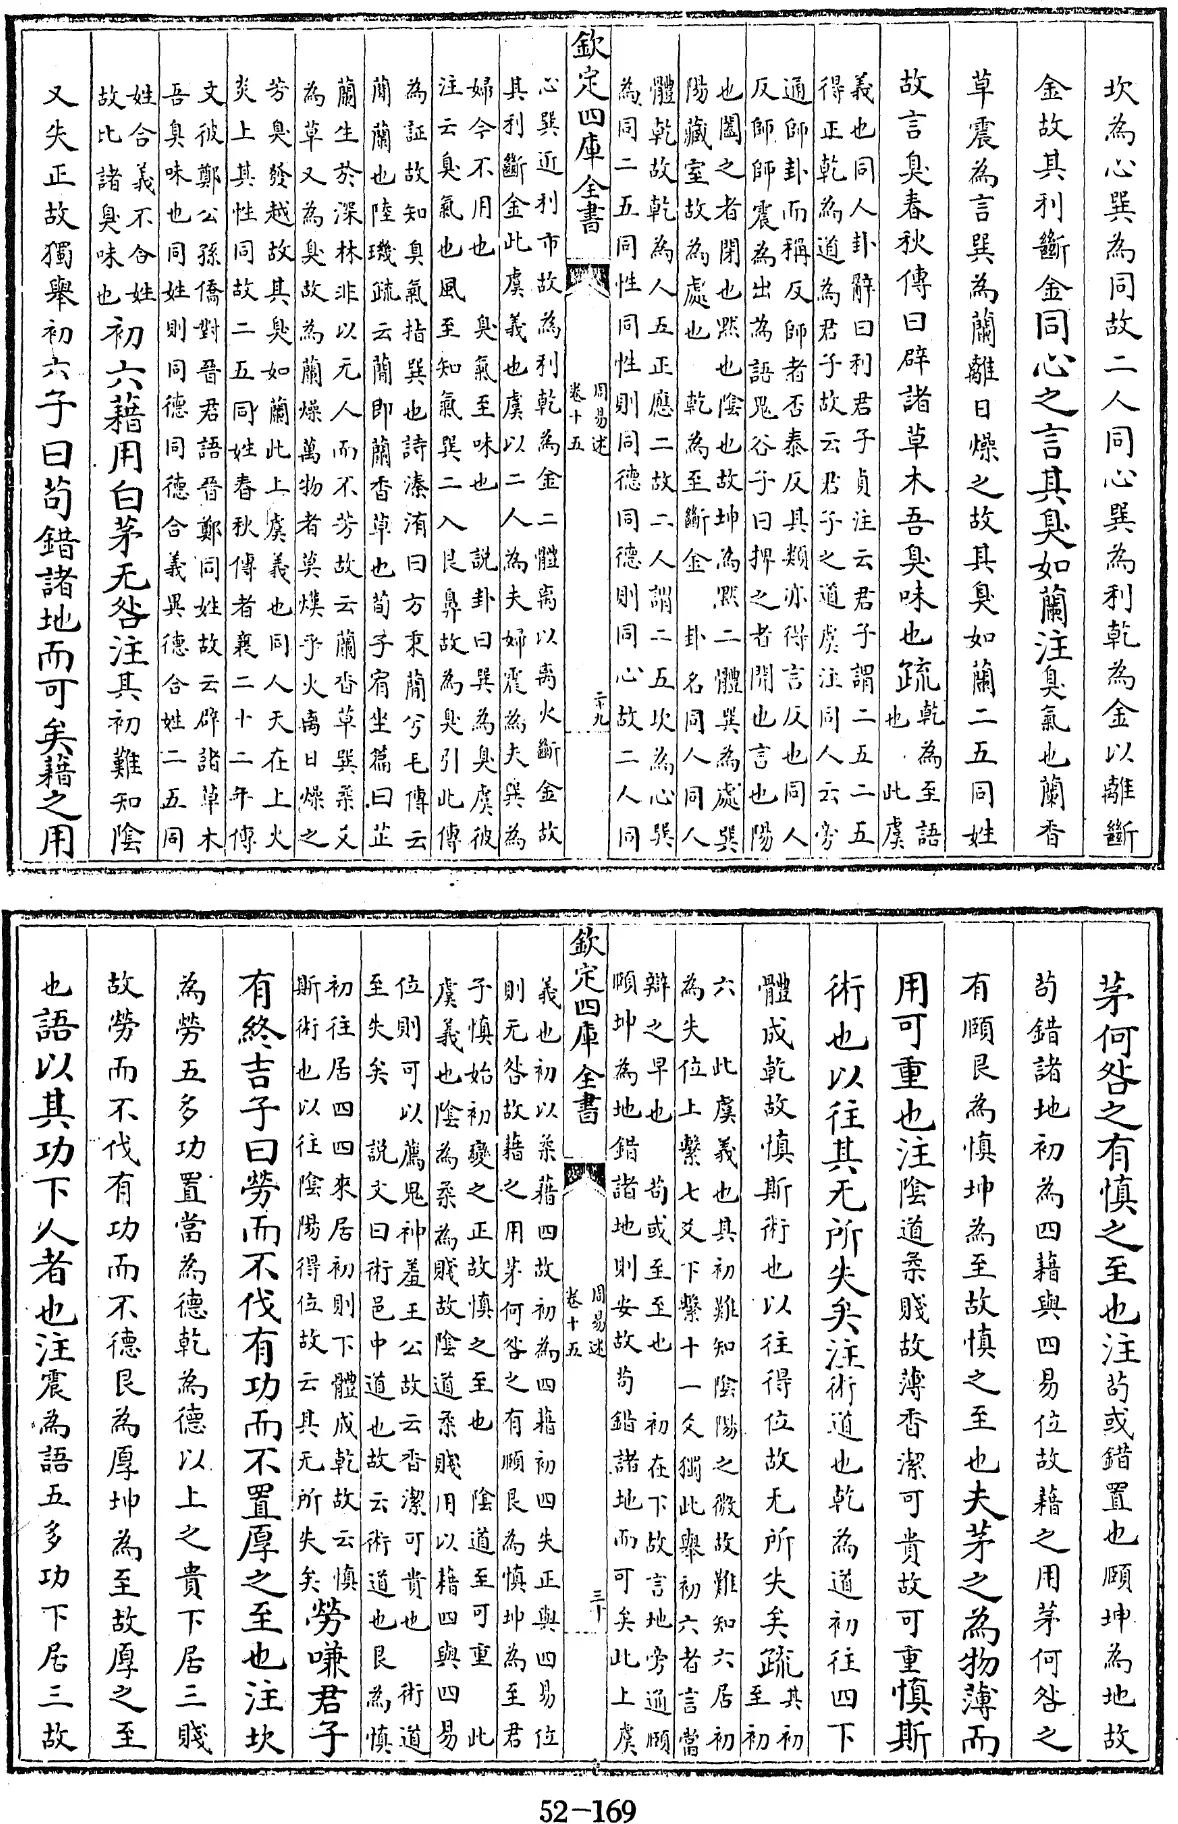 坎為心巽為同故二人同心巽為利乾為金以離斷
金故其利斷金同心之言其臭如蘭注臭氣也蘭香
草震為言巽為蘭離日燥之故其臭如蘭二五同姓
故言臭春秋傳曰辟諸草木吾臭味也疏乾為至語
也 此虞
義也同人卦辭曰利君子貞注云君子謂二五二五
得正乾為道為君子故云君子之道虞注同人云旁
通師卦而稱反師者否泰反其類亦得言反也同人
反師師震為出為語鬼谷子曰捭之者開也言也陽
也闔之者閉也黙也陰也故坤為黙二體巽為處巽
陽藏室故為處也 乾為至斷金 卦名同人同人
體乾故乾為人五正應二故二人謂二五坎為心巽
為同二五同性同性則同德同德則同心故二人同
欽定四庫全書
周易述
卷十五
二十九
心巽近利市故為利乾為金二體离以离火斷金故
其利斷金此虞義也虞以二人為夫婦震為夫巽為
婦今不用也 臭氣至味也 説卦曰巽為臭虞彼
注云臭氣也風至知氣巽二入艮鼻故為臭引此傳
為証故知臭氣指巽也詩溱洧曰方秉蕑兮毛傳云
蕑蘭也陸璣疏云蕑即蘭香草也荀子宥坐篇曰芷
蘭生於深林非以无人而不芳故云蘭香草巽柔爻
為草又為臭故為蘭燥萬物者莫熯乎火离日燥之
芳臭發越故其臭如蘭此上虞義也同人天在上火
炎上其性同故二五同姓春秋傳者襄二十二年傳
文彼鄭公孫僑對晉君語晉鄭同姓故云辟諸草木
吾臭味也同姓則同德同德合義異德合姓二五同
姓合義不合姓
故比諸臭味也初六藉用白茅无咎注其初難知陰
又失正故獨舉初六子曰苟錯諸地而可矣藉之用
茅何咎之有慎之至也注苟或錯置也頤坤為地故
苟錯諸地初為四藉與四易位故藉之用茅何咎之
有頤艮為慎坤為至故慎之至也夫茅之為物薄而
用可重也注陰道柔賤故薄香潔可貴故可重慎斯
術也以往其无所失矣注術道也乾為道初往四下
體成乾故慎斯術也以往得位故无所失矣疏其初
至初
六 此虞義也其初難知陰陽之微故難知六居初
為失位上繫七爻下繫十一爻獨此舉初六者言當
辯之早也 苟或至至也 初在下故言地旁通頤
頤坤為地錯諸地則安故苟錯諸地而可矣此上虞
欽定四庫全書
周易述
卷十五
三十
義也初以柔藉四故初為四藉初四失正與四易位
則无咎故藉之用茅何咎之有頤艮為慎坤為至君
子慎始初變之正故慎之至也 陰道至可重 此
虞義也陰為柔為賤故陰道柔賤用以藉四與四易
位則可以薦鬼神羞王公故云香潔可貴也 術道
至失矣 説文曰術邑中道也故云術道也艮為慎
初往居四四來居初則下體成乾故云慎
斯術也以往陰陽得位故云其无所失矣勞嗛君子
有終吉子曰勞而不伐有功而不置厚之至也注坎
為勞五多功置當為德乾為德以上之貴下居三賤
故勞而不伐有功而不德艮為厚坤為至故厚之至
也語以其功下人者也注震為語五多功下居三故
52-169